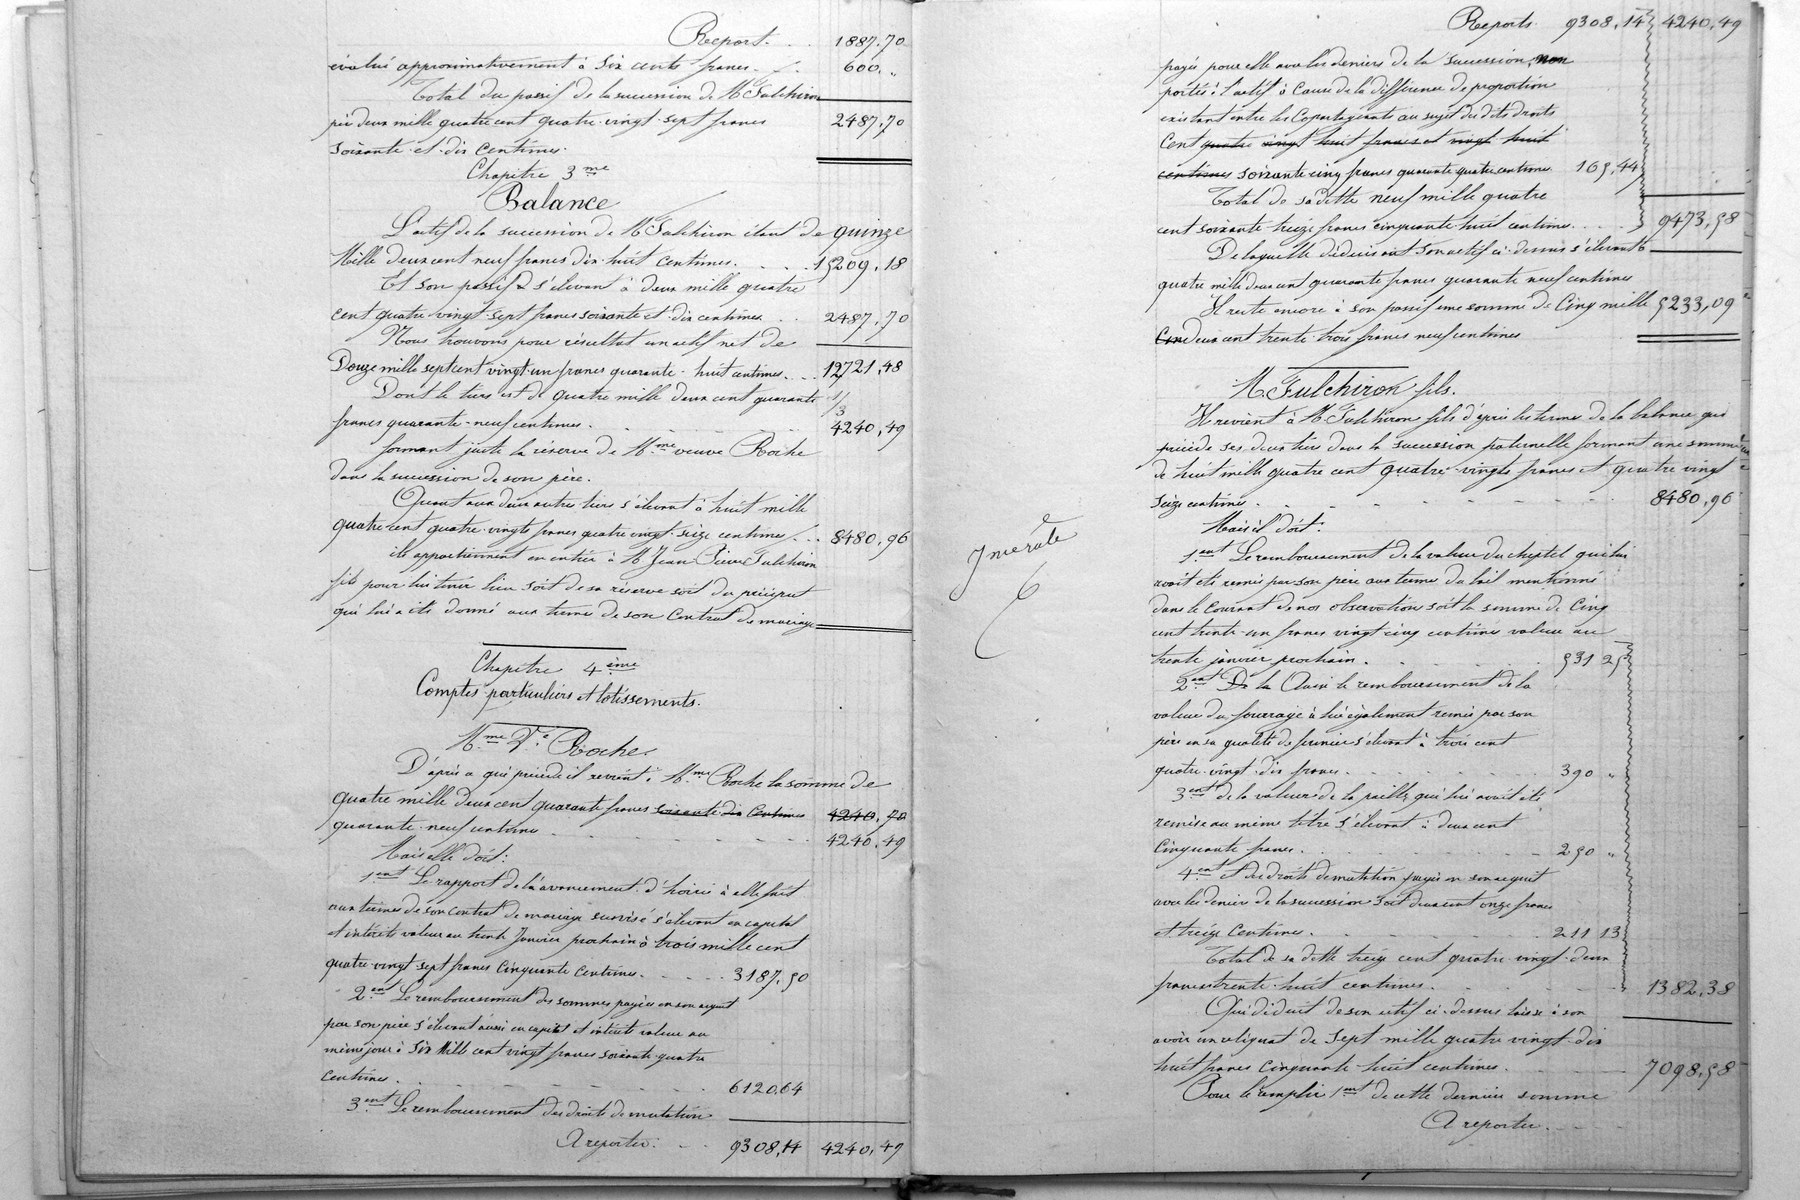 Report. . . 1887.70
évalué approximativement à Six cents francs. . 600. "
Total du passif de la succession de Mr Fulchiron
père deux mille quatre cent quatre-vingt-sept francs 2487.70
soixante-et-dix Centimes.
Chapitre 3me
Balance
L'actif de la succession de Mr Fulchiron étant de quinze
Mille deux cent neuf francs dix-huit centimes. . . . 15209.18
Et son passif s'élevant à deux mille quatre
cent quatre-vingt-sept francs soixante et dix centimes . . 2487.70
Nous trouvons pour résultat un actif net de
Douze mille sept cent vingt-un francs quarante-huit centimes. . . 12721.48
Dont le tiers est de quatre mille deux cent quarante 1/3
francs quarante-neuf centimes. . . . 4240.49
formant juste la réserve de Mme veuve Roche
dans la succession de son père.
Quant aux deux autres tiers s'élevant à huit mille
quatre cent quatre-vingts francs quatre-vingt-seize centimes . . . 8480.96
ils appartiennent en entier à Mr Jean Pierre Fulchiron
fils pour lui tenir lieu soit de sa réserve soit du préciput
qui lui a été donné aux termes de son Contrat de mariage
Chapitre 4ème
Comptes particuliers et lotissements.
Mme Vve Roche.
D'après ce qui précède il revient à Mme Roche la somme de
quatre mille deux cent quarante francs soixante-dix Centimes 4240.70
quarante-neuf centimes . . . 4240.49
Mais elle doit:
1ent Le rapport de l'avancement d'hoirie à elle fait
aux termes de son contrat de mariage susvisé s'élevant en capital
et intérêts valeur au trente Janvier prochain à trois mille cent
quatre-vingt-sept francs Cinquante Centimes. . . . 3187.50
2ent Le remboursement des sommes payées en son acquit
par son père s'élevant aussi en capital et intérêts valeur au
même jour à Six Mille cent vingt francs soixante-quatre
Centimes. . . . 6120.64
3ent Le remboursement des droits de mutation
A reporter. . . 9308.14 4240.49
Reports. 9308.14 4240.49
payés pour elle avec les deniers de la succession, non
portés à l'actif à Cause de la différence de proportion
existant entre les Copartageants au sujet desdits droits
Cent quatre vingt huit francs et vingt huit
centimes soixante cinq francs quarante quatre centimes 165.44
Total de sa dette neuf mille quatre
cent soixante treize francs cinquante-huit centimes. . . . 9473.58
De laquelle déduisant son actif ci-dessus s'élevant à
quatre mille deux cent quarante francs quarante neuf centimes
Il reste encore à son passif une somme de Cinq mille 5233,09
Cin deux cent trente-trois francs neuf centimes
M. Fulchiron fils.
Il revient à Mr Fulchiron fils d'après les termes de la balance qui
précède ses deux tiers dans la succession paternelle formant une somme
de huit mille quatre cent quatre-vingts francs et quatre vingt
seize centimes. . . . 8480.96
Mais il doit:
1ent Le remboursement de la valeur du cheptel qui lui
avait été remis par son père aux termes du bail mentionné
dans le Courant de nos observations soit la somme de Cinq
cent trente-un francs vingt cinq centimes valeur au
trente janvier prochain. . . . 531 25
2ent De la Quin le remboursement de la
valeur du fourrage à lui également remis par son
père en sa qualité de fermier s'élevant à trois cent
quatre-vingt-dix francs. . . . 390 "
3ent de la valeur de la paille, qui lui avait été
remise au même titre s'élevant à deux cent
Cinquante francs. . . . 250 "
4ent et des droits de mutation payés en son acquit
avec les deniers de la succession soit deux cent onze francs
et treize Centimes. . . . 211 13
Total de sa dette treize cent quatre-vingt-deux
francs trente-huit centimes. . . . 1382.38
Qui déduit de son actif ci-dessus laisse à son
avoir un reliquat de Sept mille quatre vingt-dix
huit francs Cinquante huit centimes. . . . 7098.58
Pour le remplir 1ent de cette dernière somme
A reporter. . .